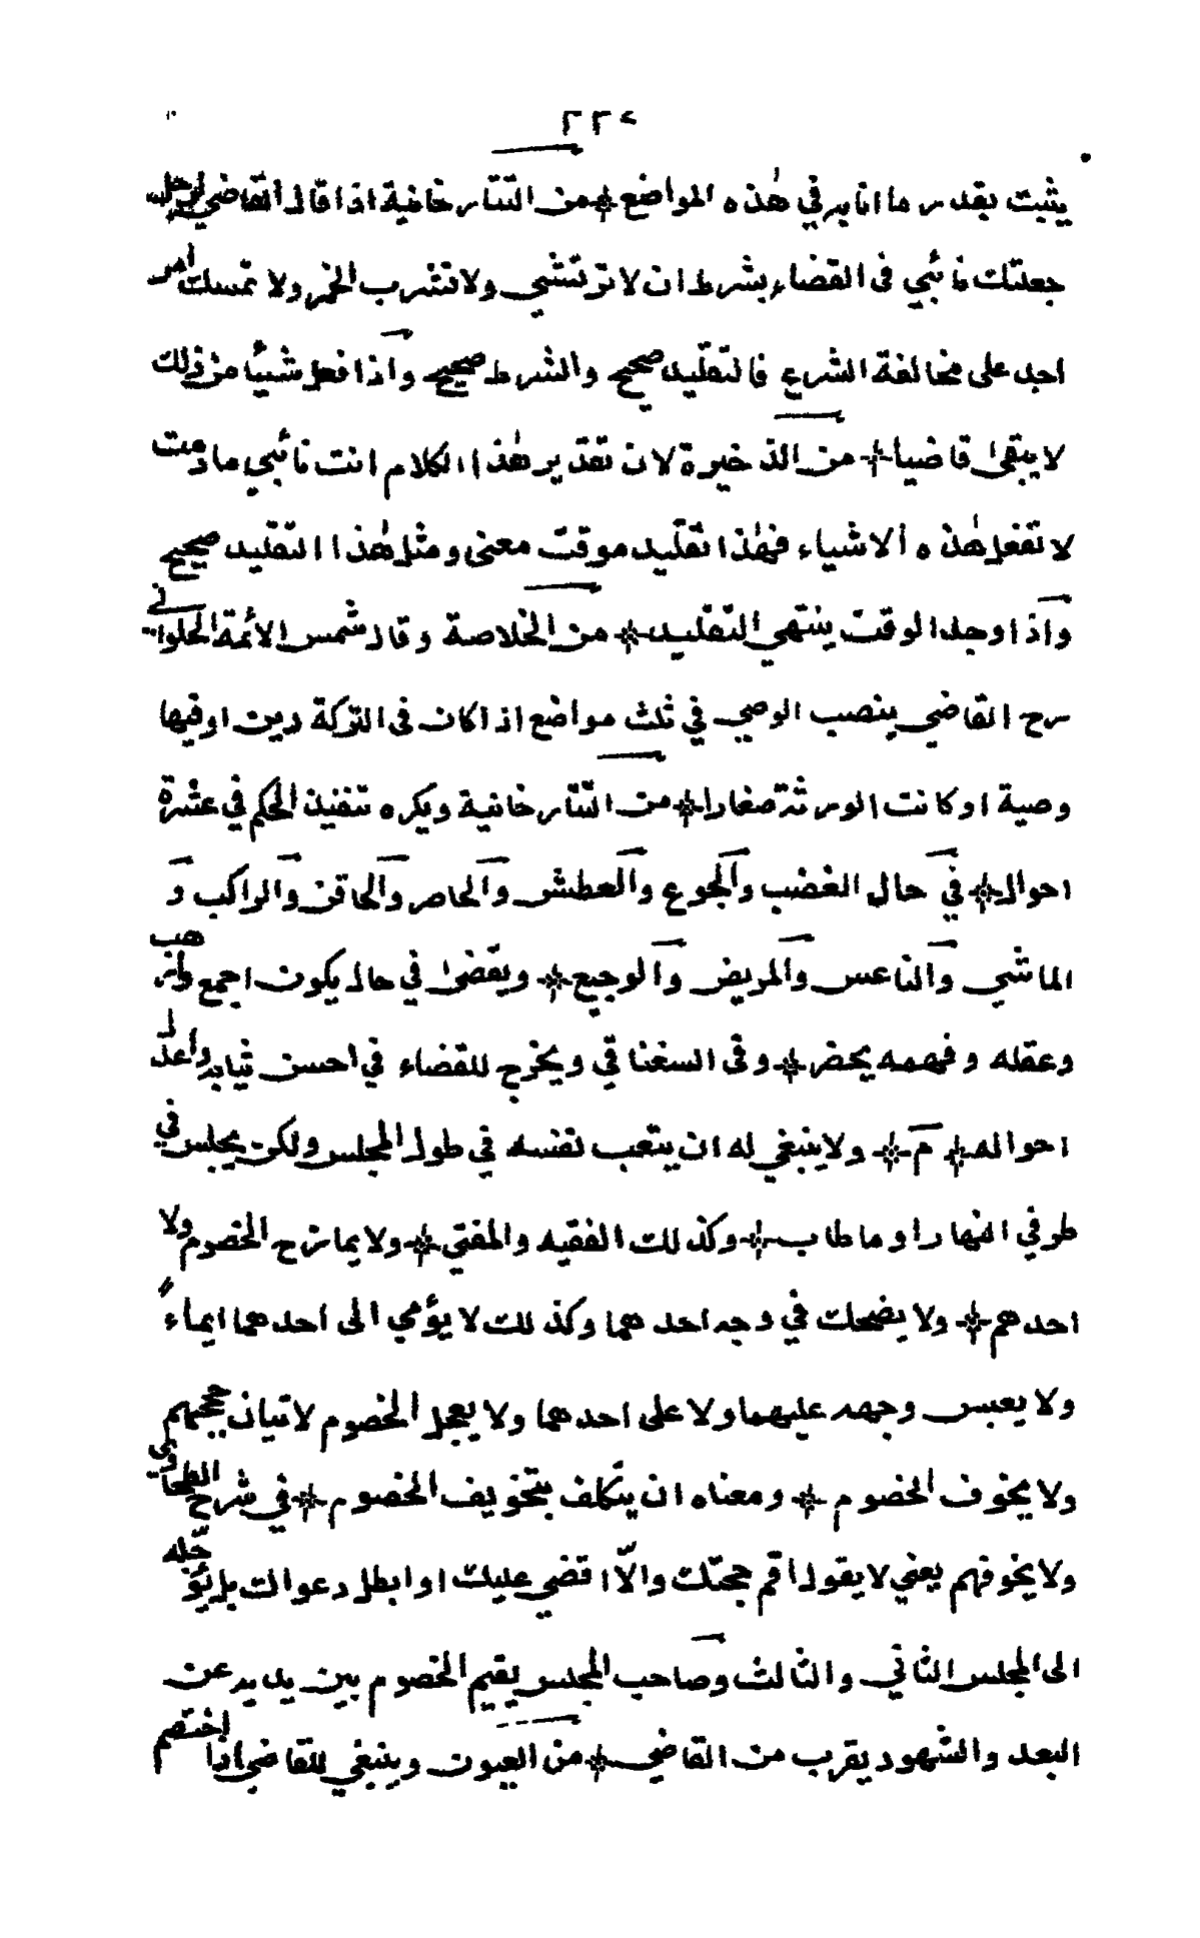 ٢٢٥
يثبت بقدر ما انابه في هٰذه المواضع ❊ من التتارخانية اذا قال القاضي لرجل
جعلتك نائبي فى القضاء بشرط ان لا ترتشي ولا تشرب الخمر ولا تمسك امر
احد على مخالفة الشرع فالتقليد صحيح والشرط صحيح واذا فعل شيئا من ذلك
لا يبقىٰ قاضيا ❊ من الذخيرة لان تقدير هٰذا الكلام انت نائبي ما دمت
لا تفعل هٰذه ألاشياء فهٰذا تقليد موقت معنى ومثل هٰذا التقليد صحيح
واذا وجد الوقت ينتهي التقليد ❊ من الخلاصة وقال شمس الائمة الحلواني
رح القاضي ينصب الوصي في ثلث مواضع اذا كان فى التركة دين او فيها
وصية او كانت الورثة صغارا ❊ من التتارخانية ويكره تنفيذ الحكم في عشرة
احوال ❊ في حال الغضب والجوع والعطش والحاصر والحاقن والراكب و
الماشي والناعس والمريض والوجيع ❊ ويقضىٰ في حال يكون اجمع
وعقله وفهمه يحضر ❊ وفى السغناقي ويخرج للقضاء في احسن ثيابه واعدل
احواله ❊ م ❊ ولا ينبغي له ان يتعب نفسه في طول المجلس ولكن يجلس في
طرفي النهار او ما طاب ❊ وكذلك الفقيه والمفتي ❊ ولا يمازح الخصوم ولا
احدهم ❊ ولا يضحك في وجه احدهما وكذلك لا يؤمي الى احدهما ايماءً
ولا يعبس وجهه عليهما ولا على احدهما ولا يعجل الخصوم لاتيان حججهم
ولا يخوف الخصوم ❊ ومعناه ان يتكلف بتخويف الخصوم ❊ في شرح الطحاوي
ولا يخوفهم يعني لا يقول اقم حجتك والّا اقضي عليك او ابطل دعواك بل يؤجله
الى المجلس الثاني والثالث وصاحب المجلس يقيم الخصوم بين يديه عن
البعد والشهود يقرب من القاضي ❊ من العيون وينبغي للقاضي اذا اختصم